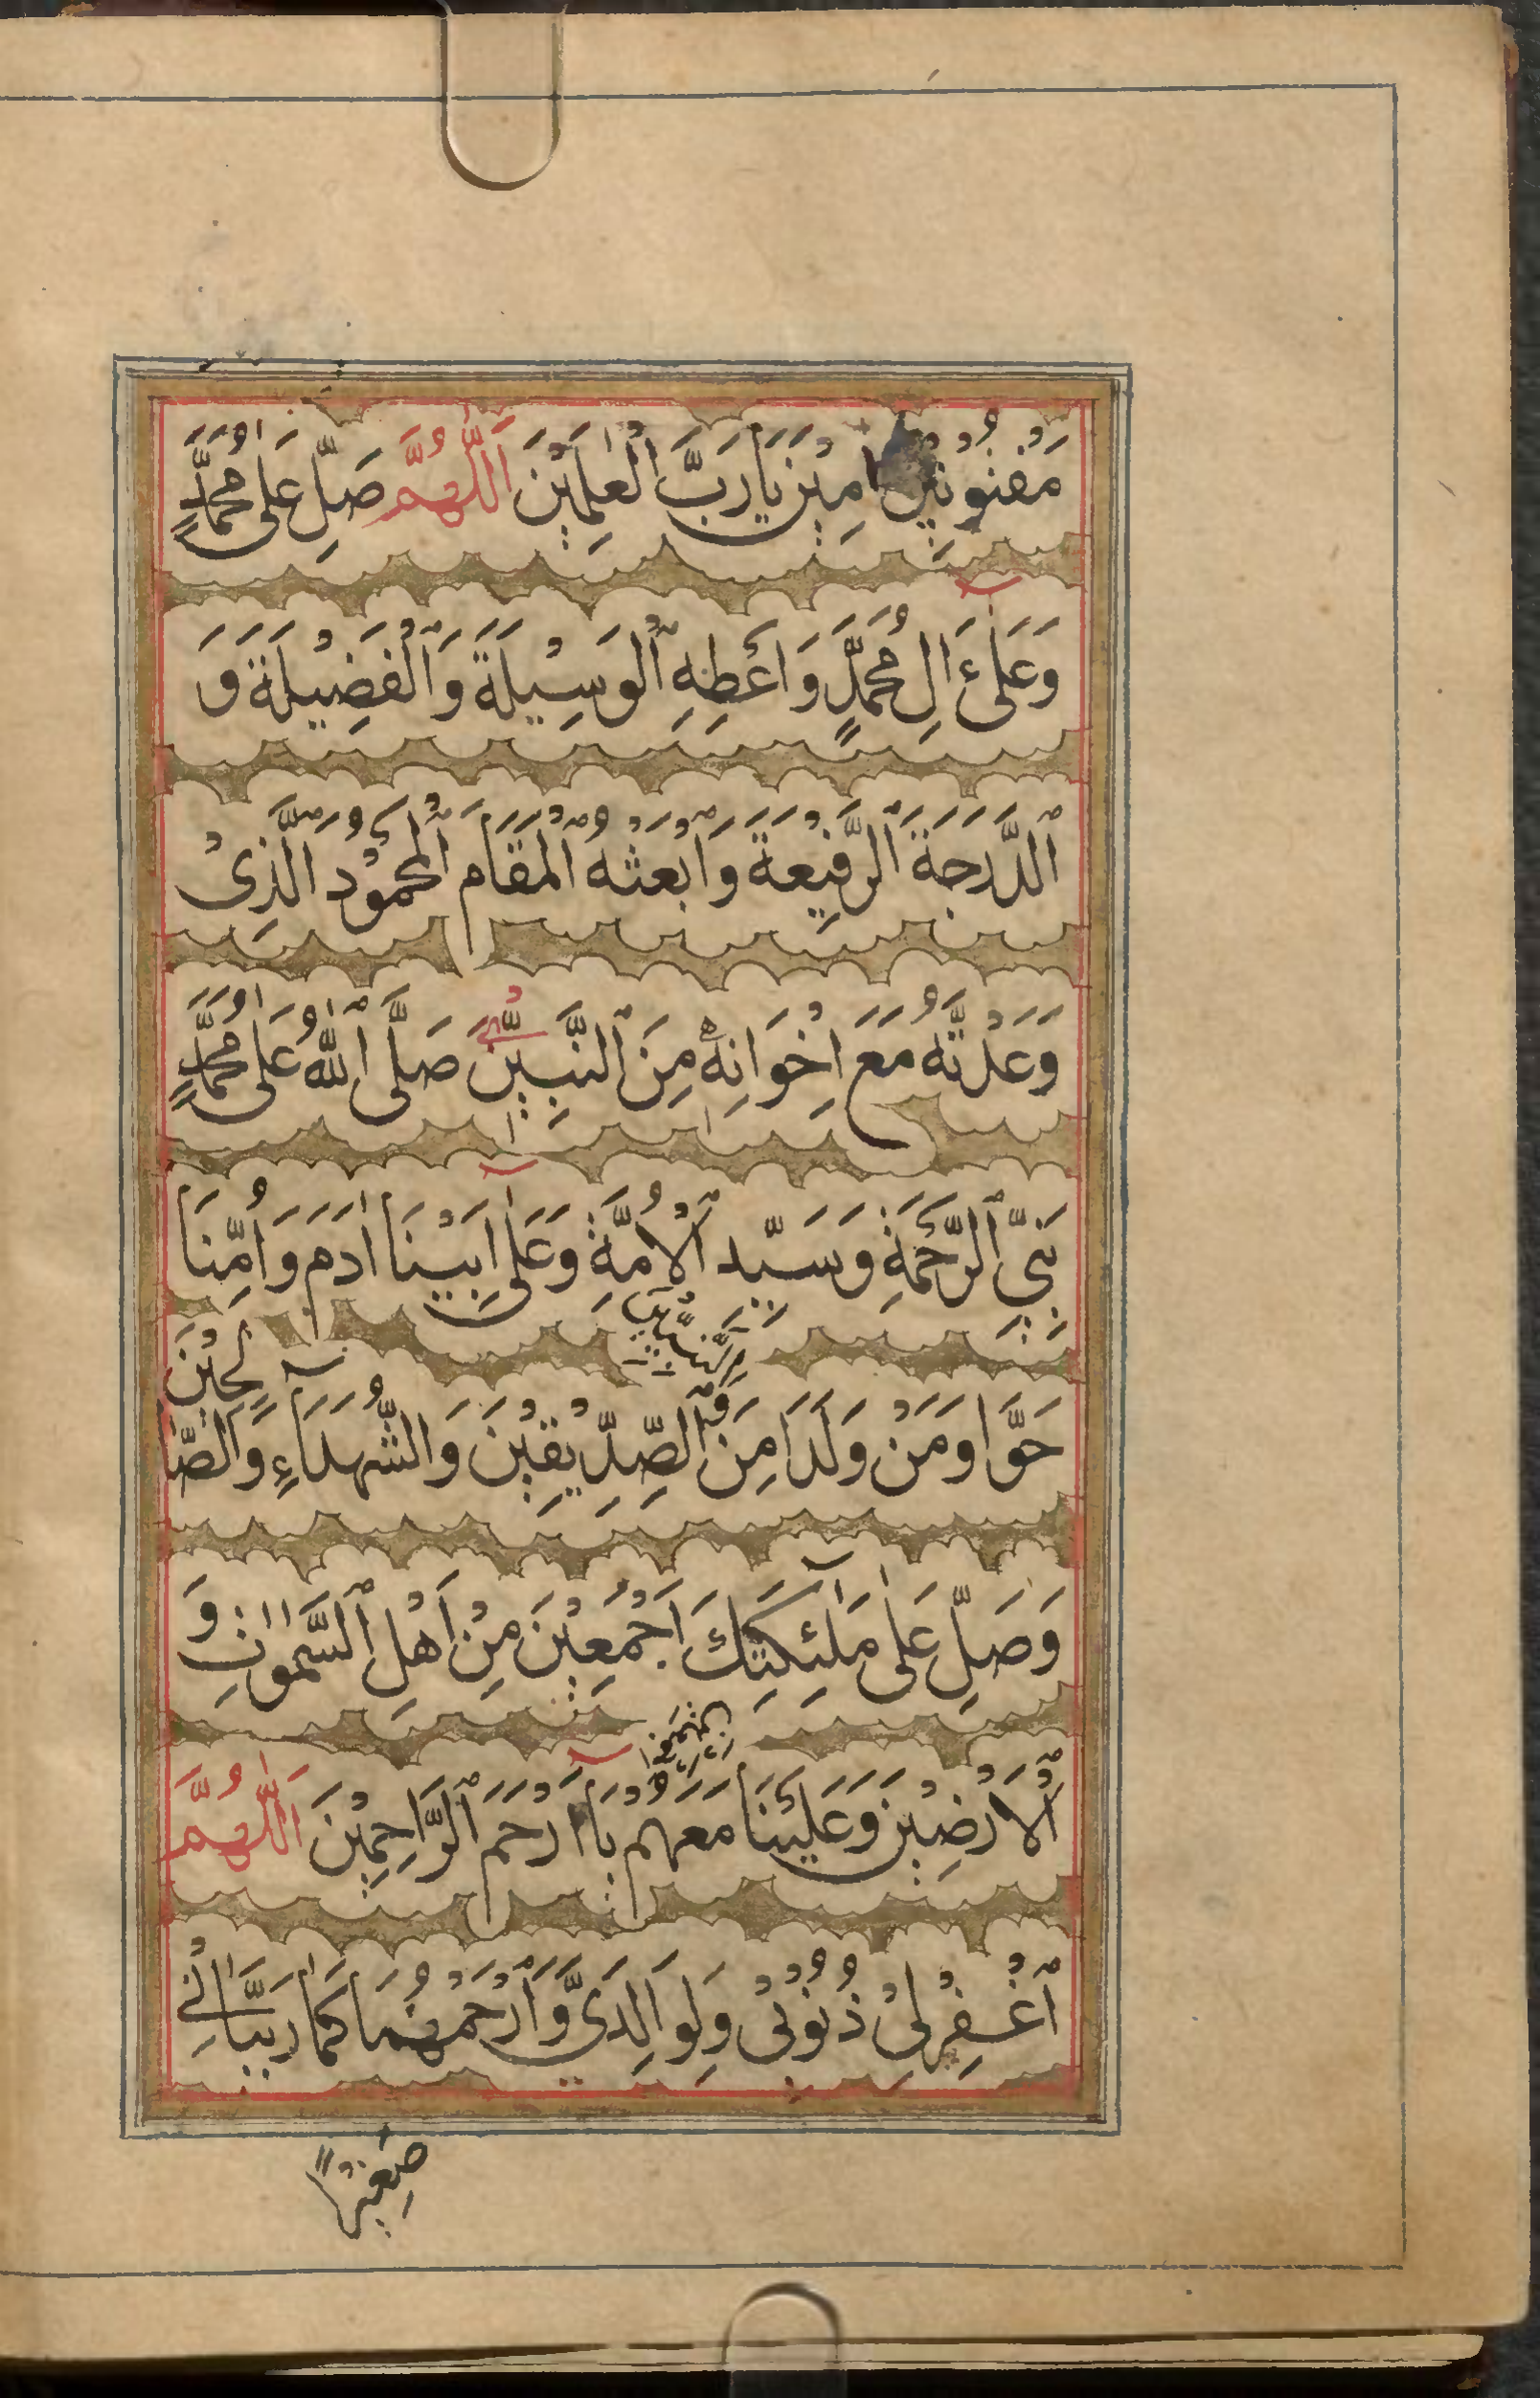 مَفْتُونِيْنَ اٰمِيْنَ يَا رَبَّ الْعٰلَمِيْنَ اَللّٰهُمَّ صَلِّ عَلٰى مُحَمَّدٍ
وَعَلٰىٓ اٰلِ مُحَمَّدٍ وَاَعْطِهِ الْوَسِيْلَةَ وَالْفَضِيْلَةَ وَ
الدَّرَجَةَ الرَّفِيْعَةَ وَابْعَثْهُ الْمَقَامَ الْمَحْمُوْدَ الَّذِيْ
وَعَدْتَّهُ مَعَ اِخْوَانِهٖ مِنَ النَّبِيّٖنَ صَلَّى اللّٰهُ عَلٰى مُحَمَّدٍ
نَبِيِّ الرَّحْمَةِ وَسَيِّدِ الْاُمَّةِ وَعَلٰىٓ اَبِيْنَا اٰدَمَ وَاُمِّنَا
حَوَّا وَمَنْ وَلَدَا مِنَ النَّبِيّٖنَ وَ الصِّدِّيْقِيْنَ وَالشُّهَدَآءِ وَالصّٰلِحِيْنَ
وَصَلِّ عَلٰى مَلٰٓئِكَتِكَ اَجْمَعِيْنَ مِنْ اَهْلِ السَّمٰوَاتِ وَ
الْاَرَضِيْنَ وَعَلَيْنَا مَعَهُمْ يَآ اَرْحَمَ الرَّاحِمِيْنَ اَللّٰهُمَّ
اغْفِرْلِيْ ذُنُوْبِيْ وَلِوَالِدَيَّ وَارْحَمْهُمَا كَمَا رَبَّيَانِيْ
صَغِيْرًا